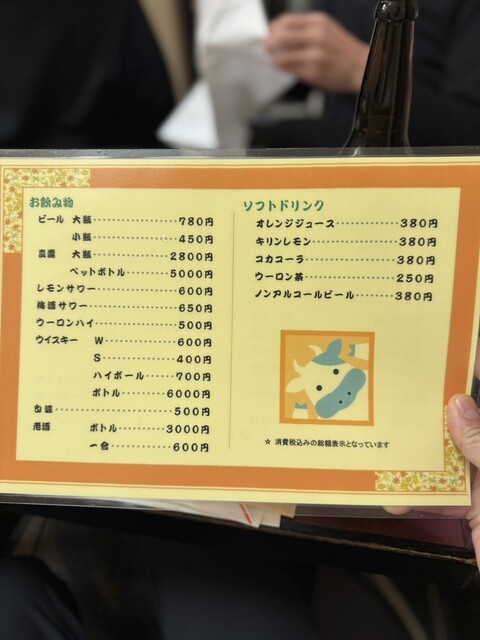 お飲み物
ビール 大瓶 780円
小瓶 450円
真露 大瓶 2800円
ペットボトル 5000円
レモンサワー 600円
梅酒サワー 650円
ウーロンハイ 500円
ウイスキー W 600円
S 400円
ハイボール 700円
ボトル 6000円
500円
ボトル 3000円
一合 600円
ソフトドリンク
オレンジジュース 380円
キリンレモン 380円
コカコーラ 380円
ウーロン茶 250円
ノンアルコールビール 380円
☆ 消費税込みの総額表示となっています